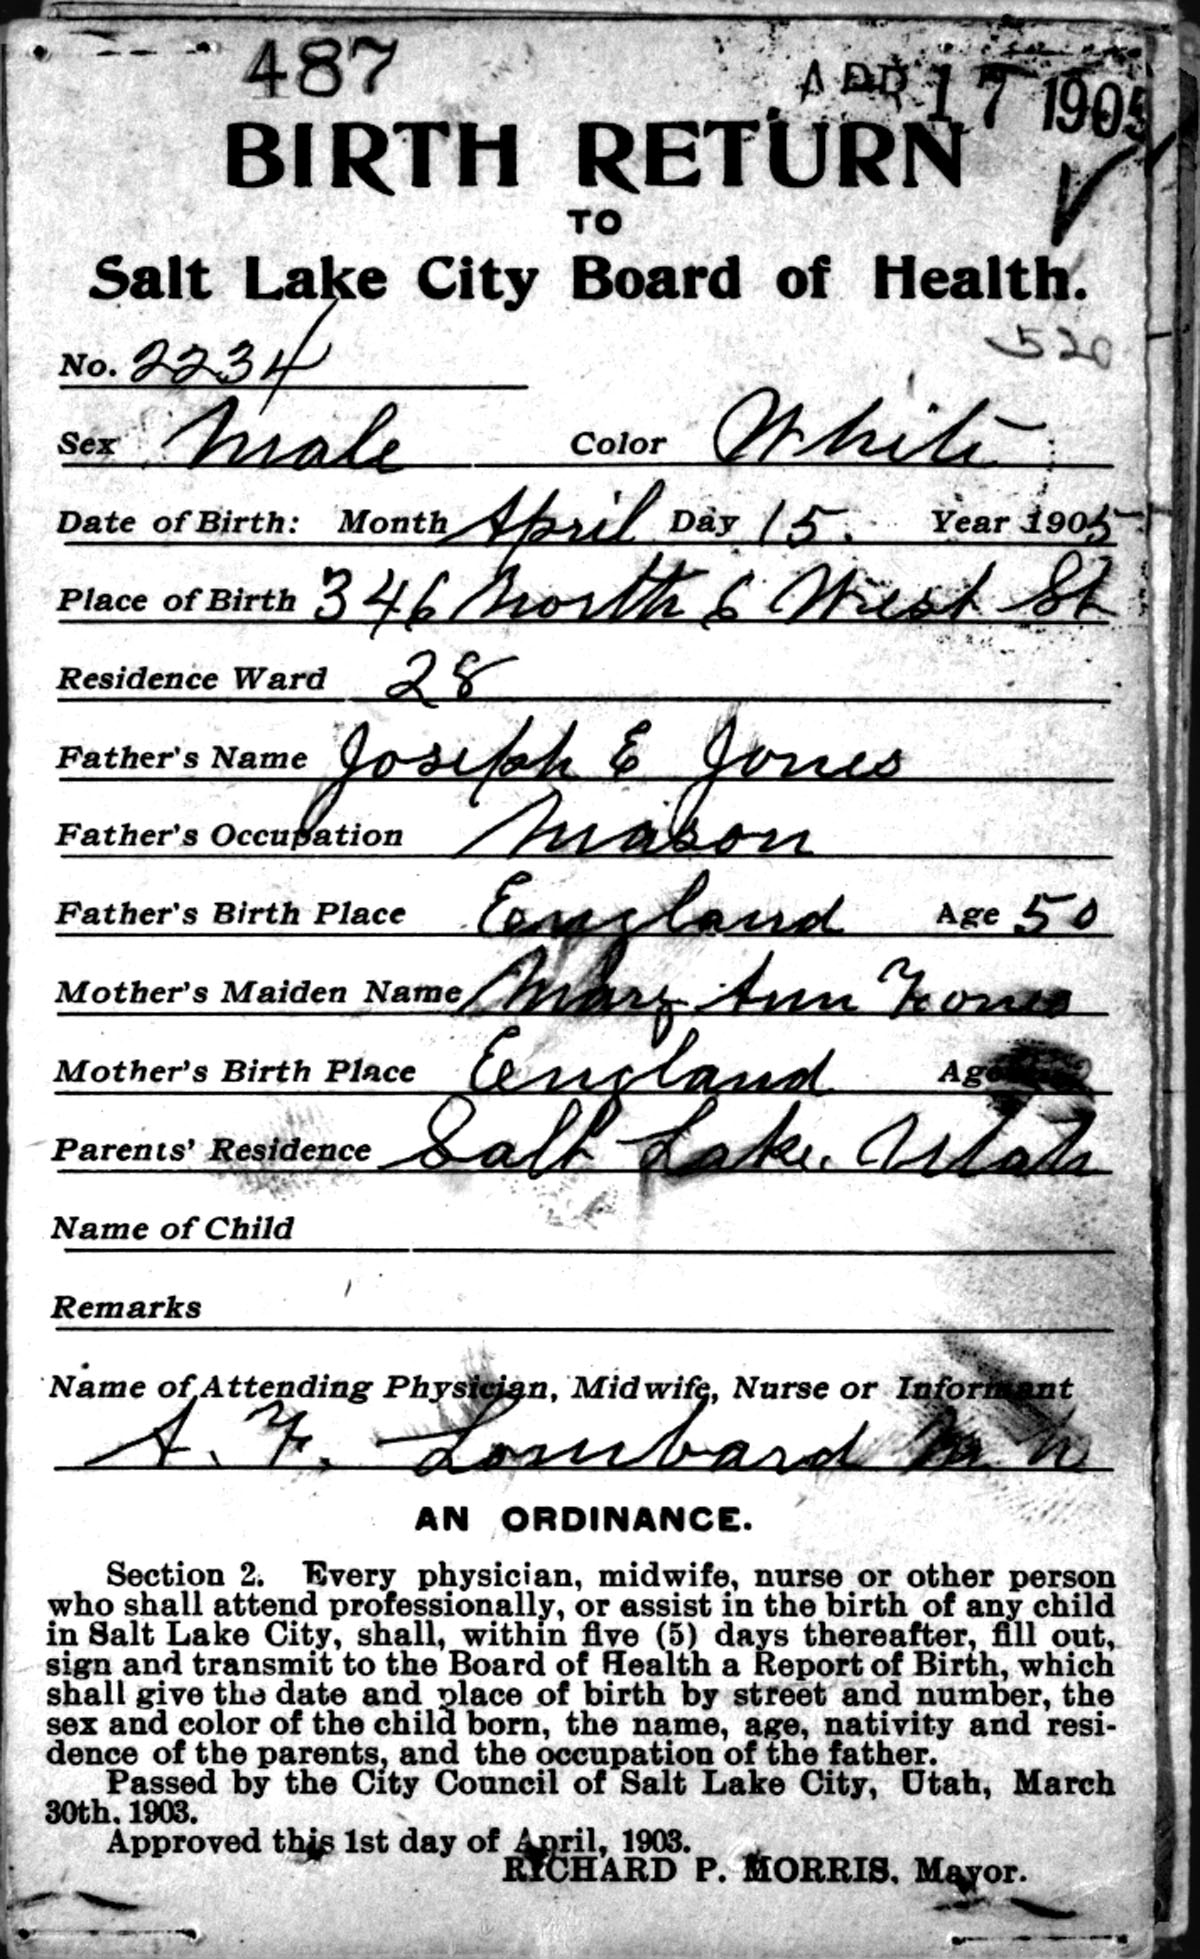 487
APR 17 1905
BIRTH RETURN
TO
Salt Lake City Board of Health.
520
No. 2234
Sex Male Color White
Date of Birth: Month April Day 15. Year 1905
Place of Birth 346 North 6 West St
Residence Ward 28
Father's Name Joseph E Jones
Father's Occupation Mason
Father's Birth Place Eengland Age 50
Mother's Maiden Name Mary Ann Fones
Mother's Birth Place Eengland Age
Parents' Residence Salt Lake. Utah
Name of Child
Remarks
Name of Attending Physician, Midwife, Nurse or Informant
A. F. Lombard
AN ORDINANCE.
Section 2. Every physician, midwife, nurse or other person
who shall attend professionally, or assist in the birth of any child
in Salt Lake City, shall, within five (5) days thereafter, fill out,
sign and transmit to the Board of Health a Report of Birth, which
shall give the date and place of birth by street and number, the
sex and color of the child born, the name, age, nativity and resi-
dence of the parents, and the occupation of the father.
Passed by the City Council of Salt Lake City, Utah, March
30th, 1903.
Approved this 1st day of April, 1903.
RICHARD P. MORRIS, Mayor.